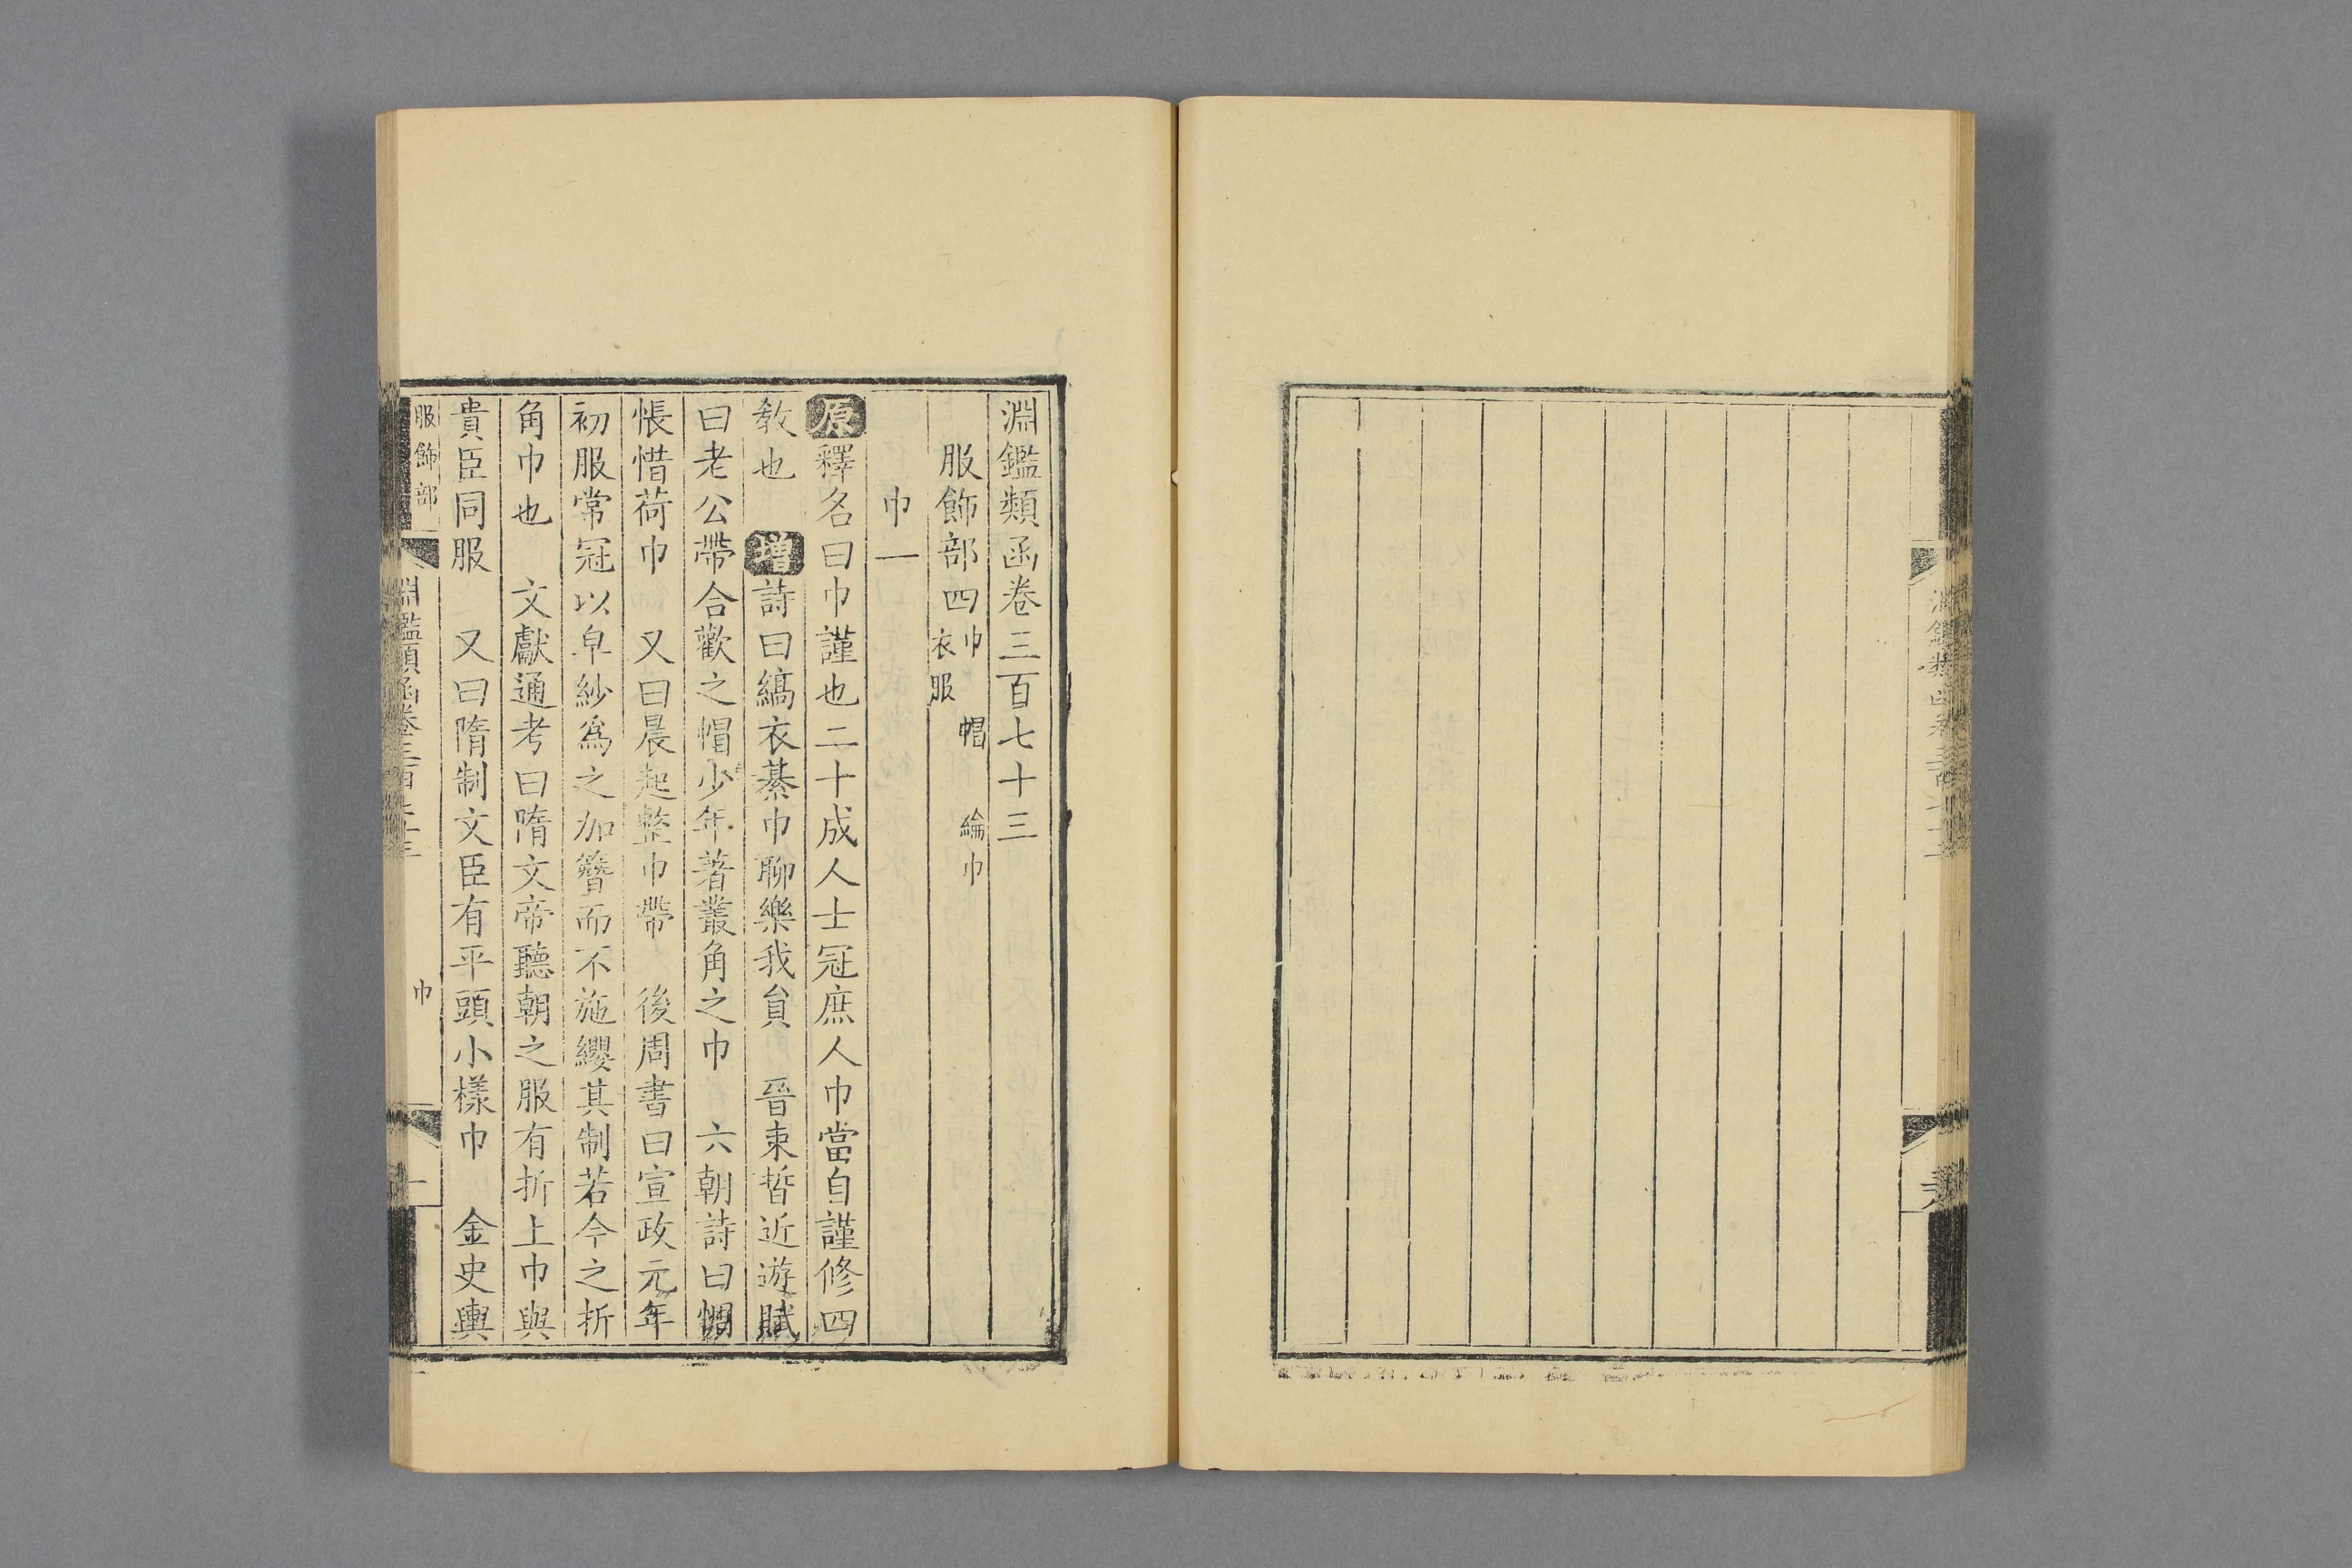 淵鑑類函卷三百七十三
服飾部四 巾 帽 綸巾 衣服
巾一
原釋名曰巾謹也二十成人士冠庶人巾當自謹修四
敎也 增詩曰縞衣綦巾聊樂我貟 晉束晳近遊賦
曰老公帶合歡之帽少年著叢角之巾 六朝詩曰惆
悵惜荷巾 又曰晨起整巾帶 後周書曰宣政元年
初服常冠以皁紗爲之加簪而不施纓其制若今之折
角巾也 文獻通考曰隋文帝聽朝之服有折上巾與
貴臣同服 又曰隋制文臣有平頭小樣巾 金史輿
服飾部
淵鑑類函卷三百七十三
巾
一